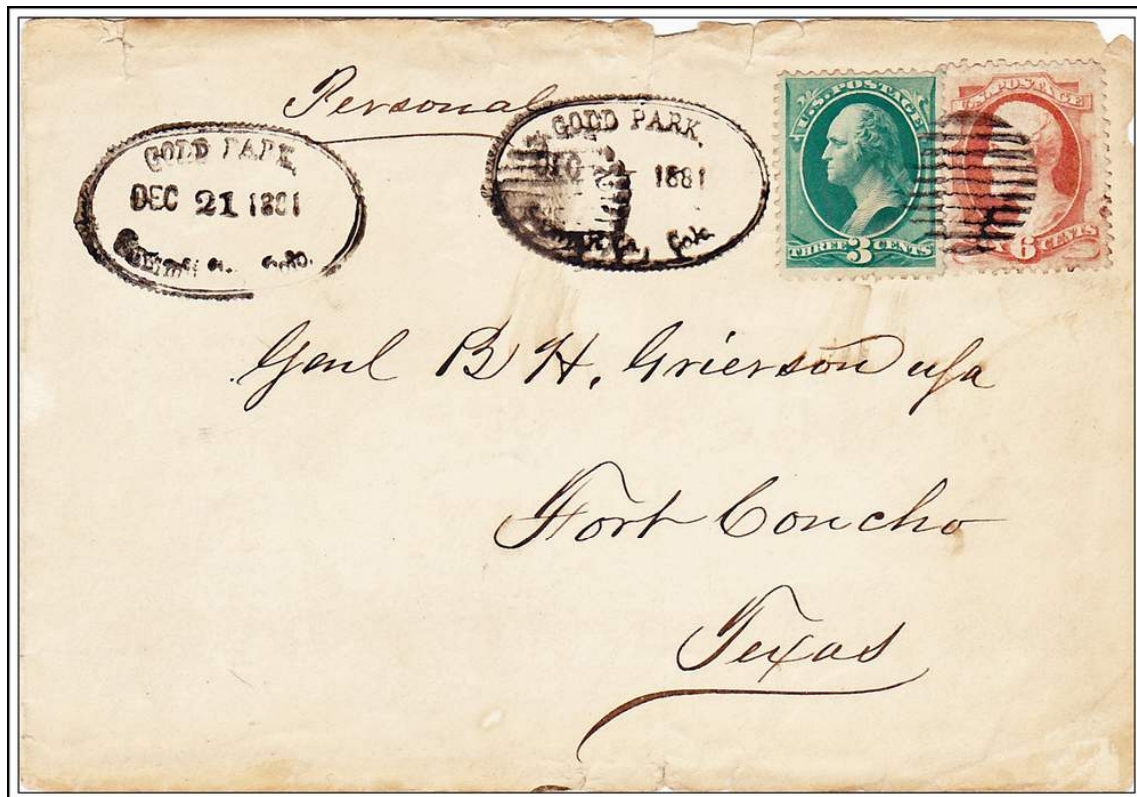 Personal
GOLD PARK,
DEC 21 1881
Colo.
GOLD PARK,
1881
U.S. POSTAGE
THREE 3 CENTS
U.S. POSTAGE
6 CENTS
Genl B H. Grierson usa
Fort Concho
Texas